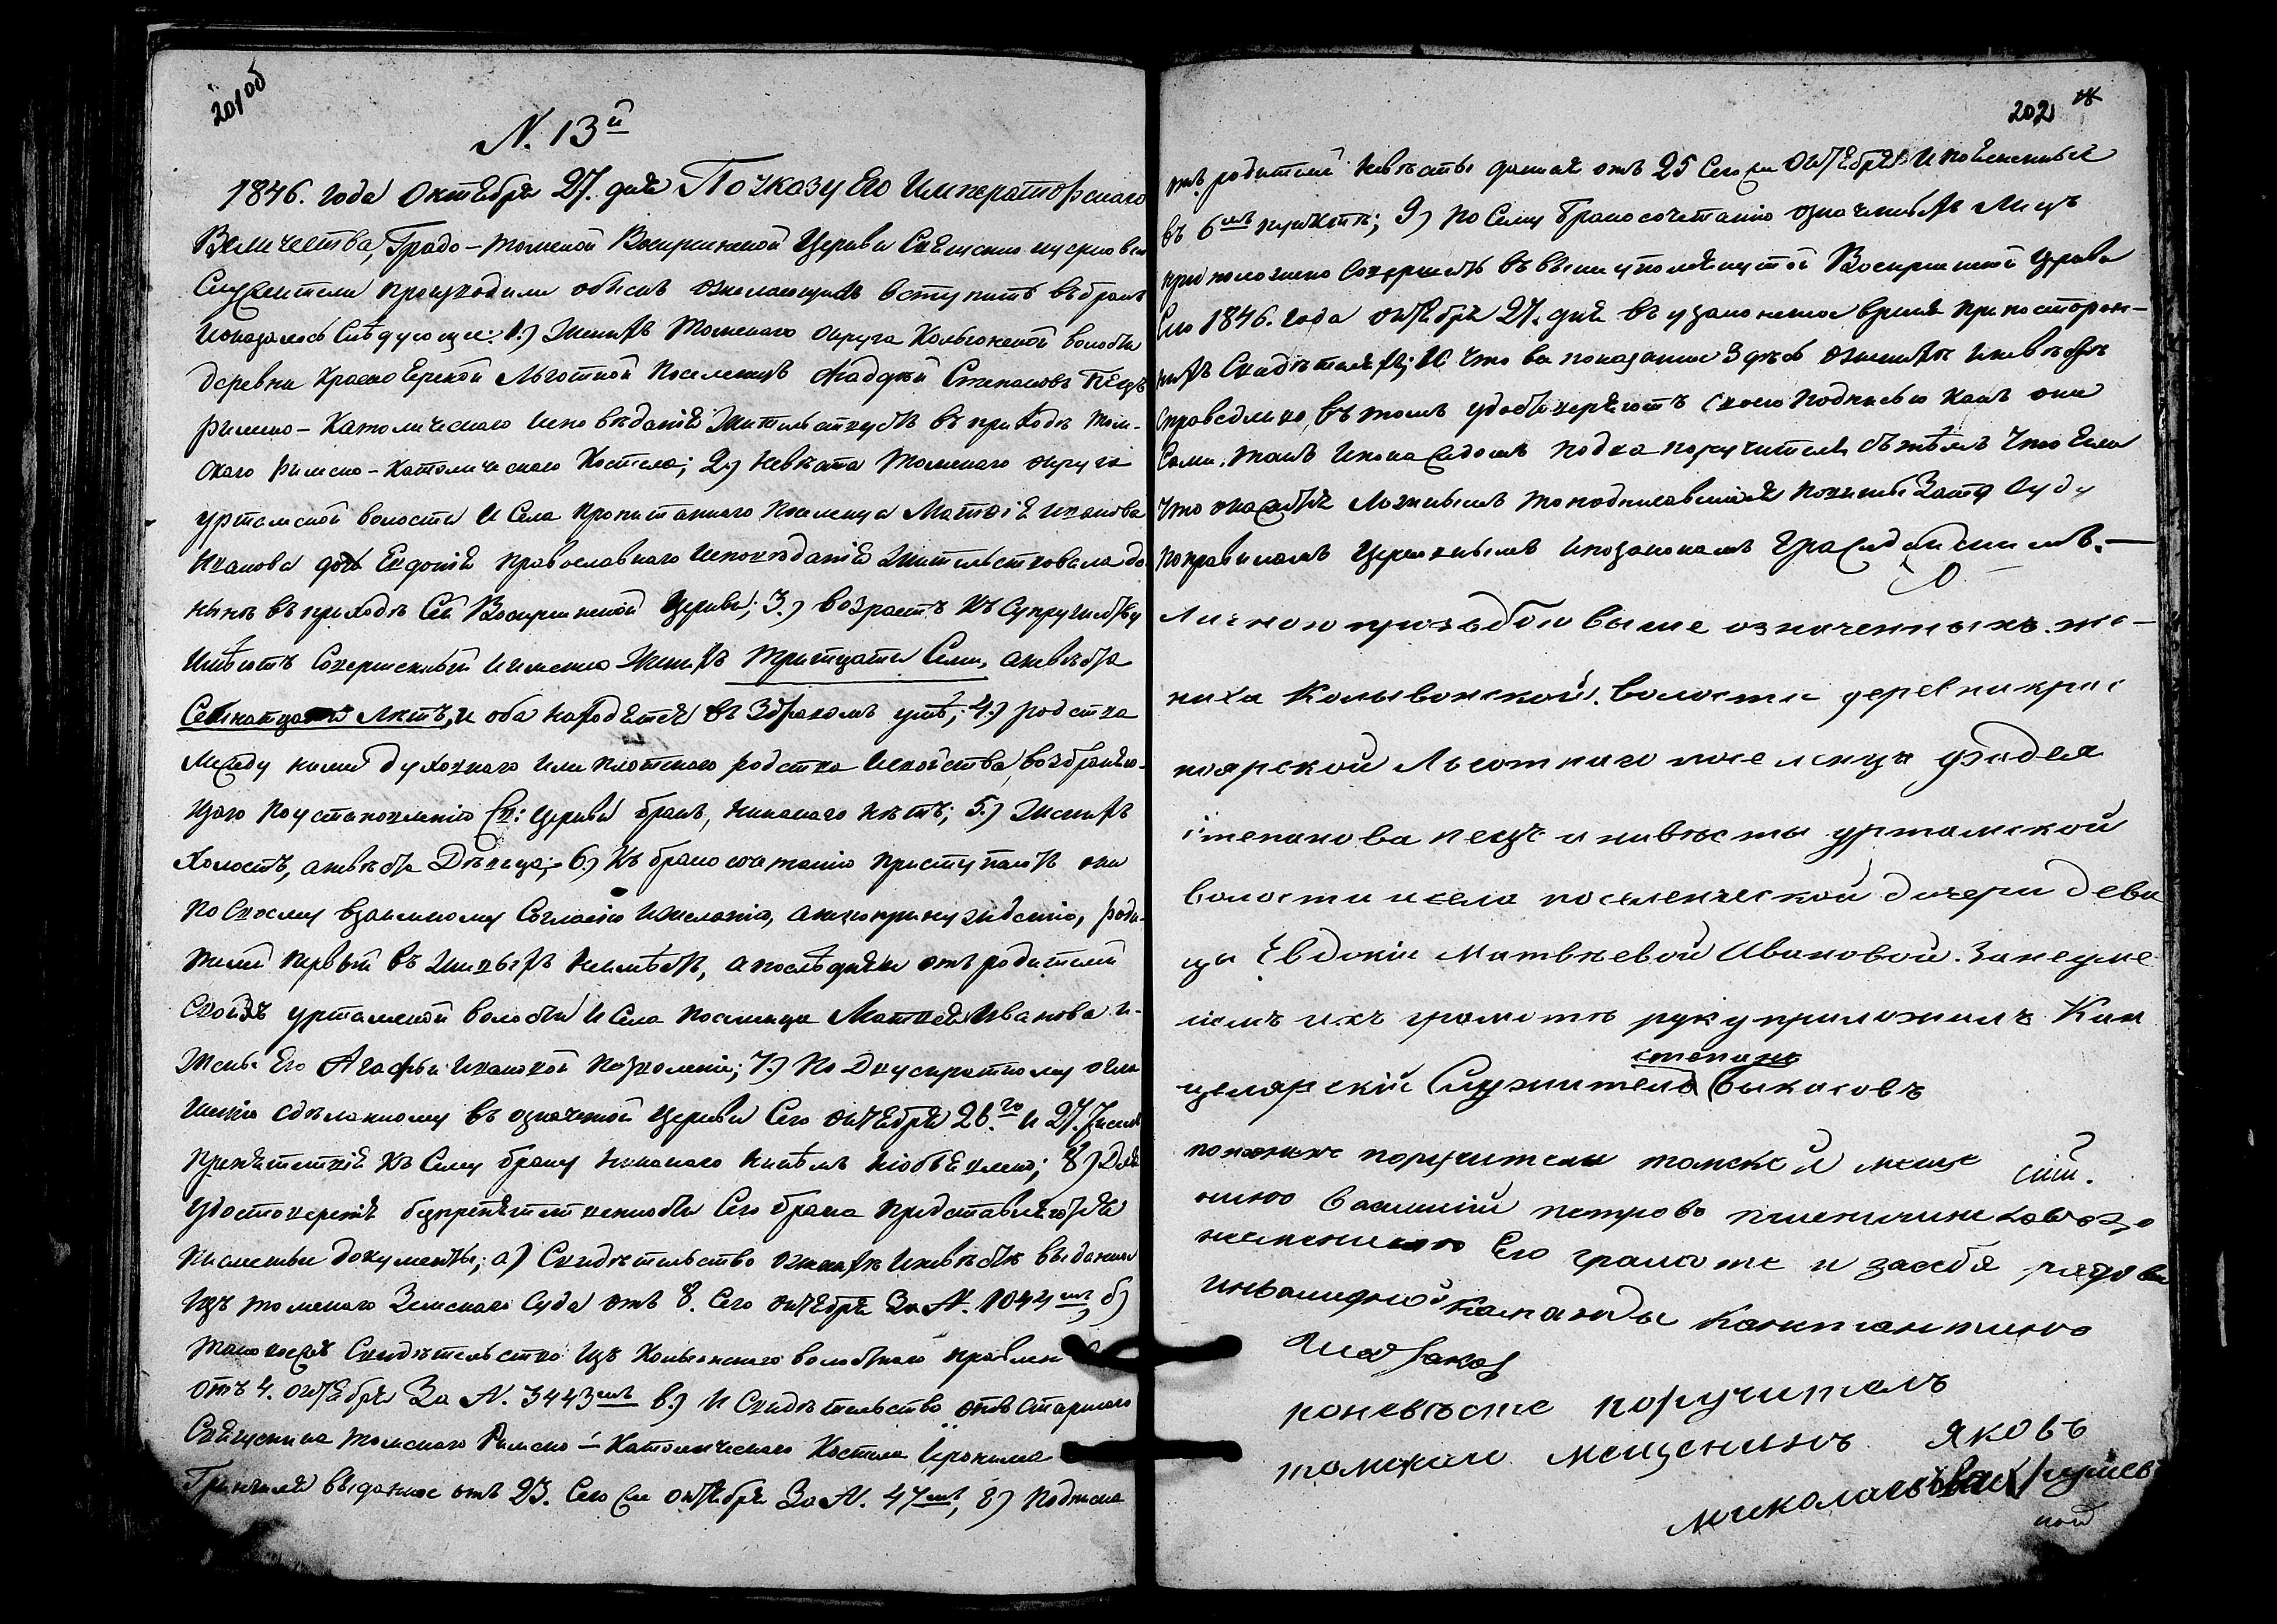 201об
N. 13й
1846. года Октября 27. дня По указу Его Императорскаго
Величества, Градо-Томской Воскресенской Церкви Священно церковно
Служители производили обыскъ о желающихъ вступить въ бракъ
и оказалось Слѣдующее: 1.) Женихъ Томскаго округа Колыонской волости
деревни Красно Ерской Льготной Поселенецъ Фаддѣй Степановъ Пецъ
римско-Католическаго исповѣданія Жительствуетъ въ приходѣ Том-
скаго римско-Католическаго Костела; 2.) невѣста Томскаго округа
уртамской волости и Села пропитаннаго Поселенца Матвія Иванова
Иванова дочь Евдокія православнаго исповѣданія Жительствовала до
нынѣ въ приходѣ Сей Воскресенской Церкви; 3.) возрастъ къ Супружеству
имѣютъ Совершенный и именно Женихъ Тритцати Семи, а невѣста
Семнатцати лѣтъ, и оба находятся въ Здравомъ умѣ; 4.) родства
Между ними духовнаго или плотскаго родства и свойства, возбраняю-
щаго по установленію Св: Церкви бракъ, никакого нѣтъ; 5.) Женихъ
Холостъ, а невѣста Дѣвица; 6.) къ бракосочетанію приступаютъ они
по Своему взаимному Согласію и желанію, а не по принужденію, роди-
телей первый въ живыхъ неимѣетъ, а послѣдняя отъ родителей
Своихъ уртамской волости и Села поселенца Матвея Иванова и
Жены Его Агафьи Ивановой позволеніе; 7.) По Двукратному огла
шенію сдѣланному въ означенной Церкви Сего октября 26.го и 27. Числъ
препятствій къ Сему браку никакого никѣмъ необъявлено; 8.) Для
удостоверенія безпрепятственности Сего брака представляются
писменные документы; а) Свидѣтельство о женихѣ и невѣстѣ выданное
изъ томскаго Земскаго Суда отъ 8. Сего октября За N. 1044мъ, б)
таковоежъ Свидѣтельство изъ Колыонскаго волостнаго правлен
отъ 4. октября За N. 3443мъ в.) и Свидѣтельство отъ Старшаго
Священника томскаго Римско-Католическаго Костела Іеронима
выданное отъ 23. Сего же октября За N. 47мъ, г) подписка
202
отъ родителей невѣсты данная отъ 25 Сего же Октября и поясненныя
въ 6мъ пунктѣ; 9.) по Сему бракосочетанію означенныхъ Лицъ
предположено Совершить въ вышеупомянутой Воскресенской Церкви
Сего 1846. года октября 27. дня въ узаконенное время при посторон-
нихъ Свидѣтеляхъ; 10. Что все показанное Здѣсь о женихѣ и невѣстѣ
справедливо, въ томъ удостоверяютъ своею подписью какъ они
Сами. такъ и по каждомъ по два поручителя съ тѣмъ что Если
что окажется Ложнымъ то подписавшіяся повинны За то Суду
по правиламъ Церковнымъ и по законамъ Гражданскимъ.—
Личною прозьбою выше означенныхъ. же-
ниха Колыванской волости деревни крас
ноярской Льготнаго поселенца Фадея
степанова пецъ и нивѣсты уртамской
волости и села поселенческой дочери деви
цы Евдокіи Матвѣевой Ивановой. За неуме
ніемъ ихъ грамотѣ руку приложилъ Кан
целярскій Служитель степанъ Быкасовъ
по женихе поручители томской меще сій.
нинъ Василий петровъ за
неумением Его грамоте и засебя рядова
инвалидной команды Канстантинъ
по невѣсте поручителъ
томской мещенинъ Яковъ
николаевъ